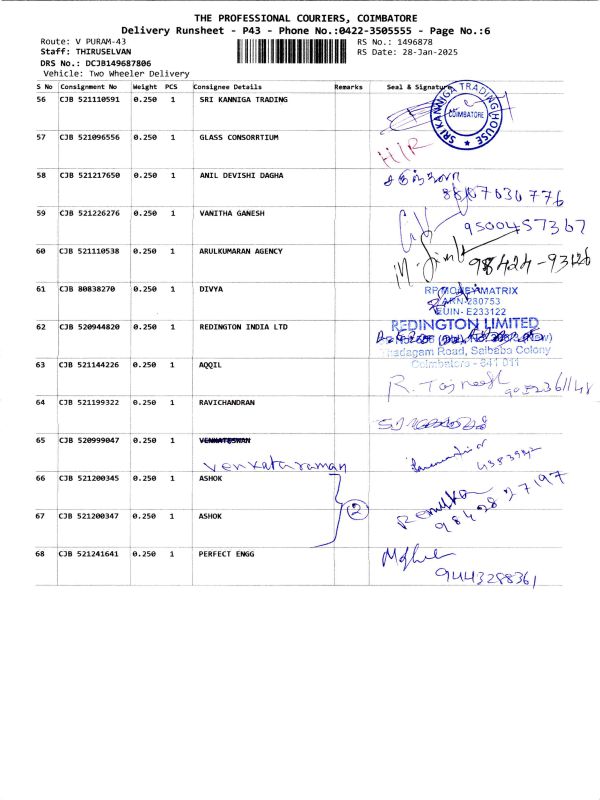 THE PROFESSIONAL COURIERS, COIMBATORE
Delivery Runsheet - P43 - Phone No.:0422-3505555 - Page No.:6
Route: V PURAM-43 RS No.: 1496878
Staff: THIRUSELVAN RS Date: 28-Jan-2025
DRS No.: DCJB149687806
Vehicle: Two Wheeler Delivery
S No Consignment No Weight PCS Consignee Details Remarks Seal & Signature
56 CJB 521110591 0.250 1 SRI KANNIGA TRADING
SRI KANNIGA TRADING HOUSE
COIMBATORE
57 CJB 521096556 0.250 1 GLASS CONSORRTIUM
H/R
58 CJB 521217650 0.250 1 ANIL DEVISHI DAGHA
59 CJB 521226276 0.250 1 VANITHA GANESH
9500457367
60 CJB 521110538 0.250 1 ARULKUMARAN AGENCY
61 CJB 80838270 0.250 1 DIVYA
RP MONEYMATRIX
ARN-280753
EUIN- E233122
62 CJB 520944820 0.250 1 REDINGTON INDIA LTD
REDINGTON LIMITED
Thadagam Road, Saibaba Colony
Coimbatore - 641 011
63 CJB 521144226 0.250 1 AQQIL
64 CJB 521199322 0.250 1 RAVICHANDRAN
65 CJB 520999047 0.250 1
Venkataraman
66 CJB 521200345 0.250 1 ASHOK
67 CJB 521200347 0.250 1 ASHOK
2
Renuka
98428 27197
68 CJB 521241641 0.250 1 PERFECT ENGG
9443288361